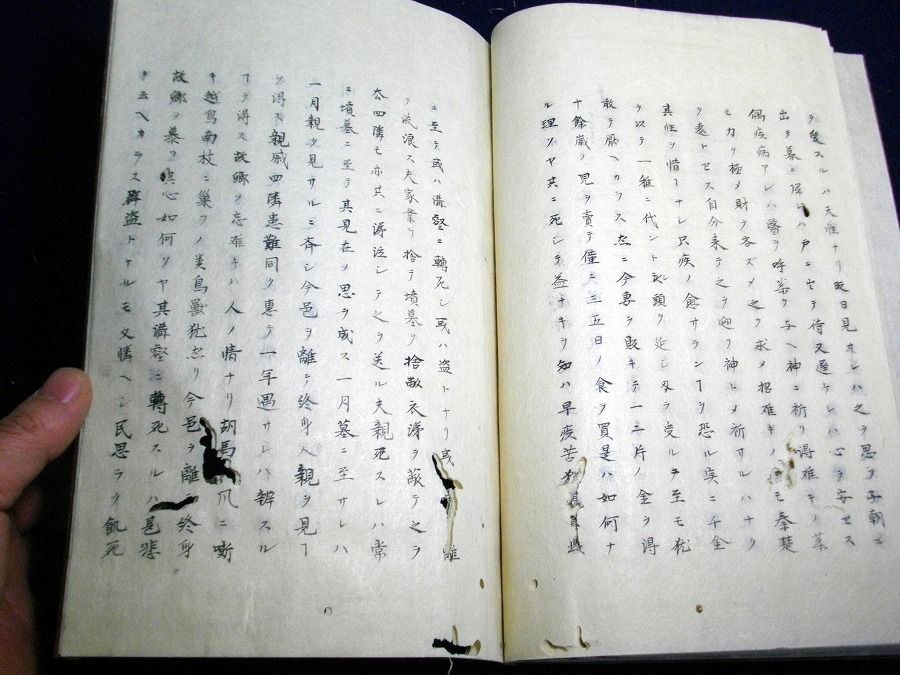 ヲ愛スルハ天性ナリ昨日見サレハ之ヲ思フ子朝ニ
出テ暮ニ帰ハ戸ニ立テ待又遅ケレハ心ヲ安セス
偶疾病アレハ醫ヲ呼薬ヲ与ヘ神ニ祈リ得難キノ菜
モ力ヲ極メ財ヲ吝ズメ之ヲ求メ招難キノ モ秦楚
ヲ遠トセス自分来テ之ヲ迎ヲ神トメ祈サルハナク
其性ヲ惜ナレ只疾ノ愈サランヿヲ恐ル実ニ千金
ヲ以テ一稚ニ代ント 頭ヲ延シ刄ヲ受ルヲ至モ犹
敢テ厭ヘカラス然ニ今妻ヲ販キテ一二片ノ金ヲ得
十餘歳ノ児ヲ賣テ僅ニ三五日ノ食ヲ買是ハ如何ナ
ル理ソヤ共ニ死シテ益ナキヲ知ハ早疾苦
ニ至テ或ハ溝壑ニ轉死シ或ハ盗トナリ或 離
テ流浪ス夫家業ヲ捨テ墳墓ヲ捨敝衣涕ヲ蔽テ之ヲ
太四隣モ亦共ニ涕泣シテ之ヲ送ル夫親死スレハ常
ニ墳墓ニ至テ其見在ノ思ヲ成ス一月墓ニ至サレハ
一月親ヲ見サルニ斉シ今邑ヲ離テ終身人親ヲ見ヿ
ヲ得ス親戚四隣患難同ク恵テ一年遇サレハ辞スル
ヿヲ得ス故郷ヲ忘難キハ人ノ情ナリ胡馬 風ニ嘶
キ越鳥南枝ニ巣フノ类鳥獣犹然リ今邑ヲ離 終身
故郷ヲ慕フ 心如何ソヤ其溝壑ニ轉死スルハ 甚悲
キニヘカラス群盗トナルモ又憐ヘシ民思ラク飢死